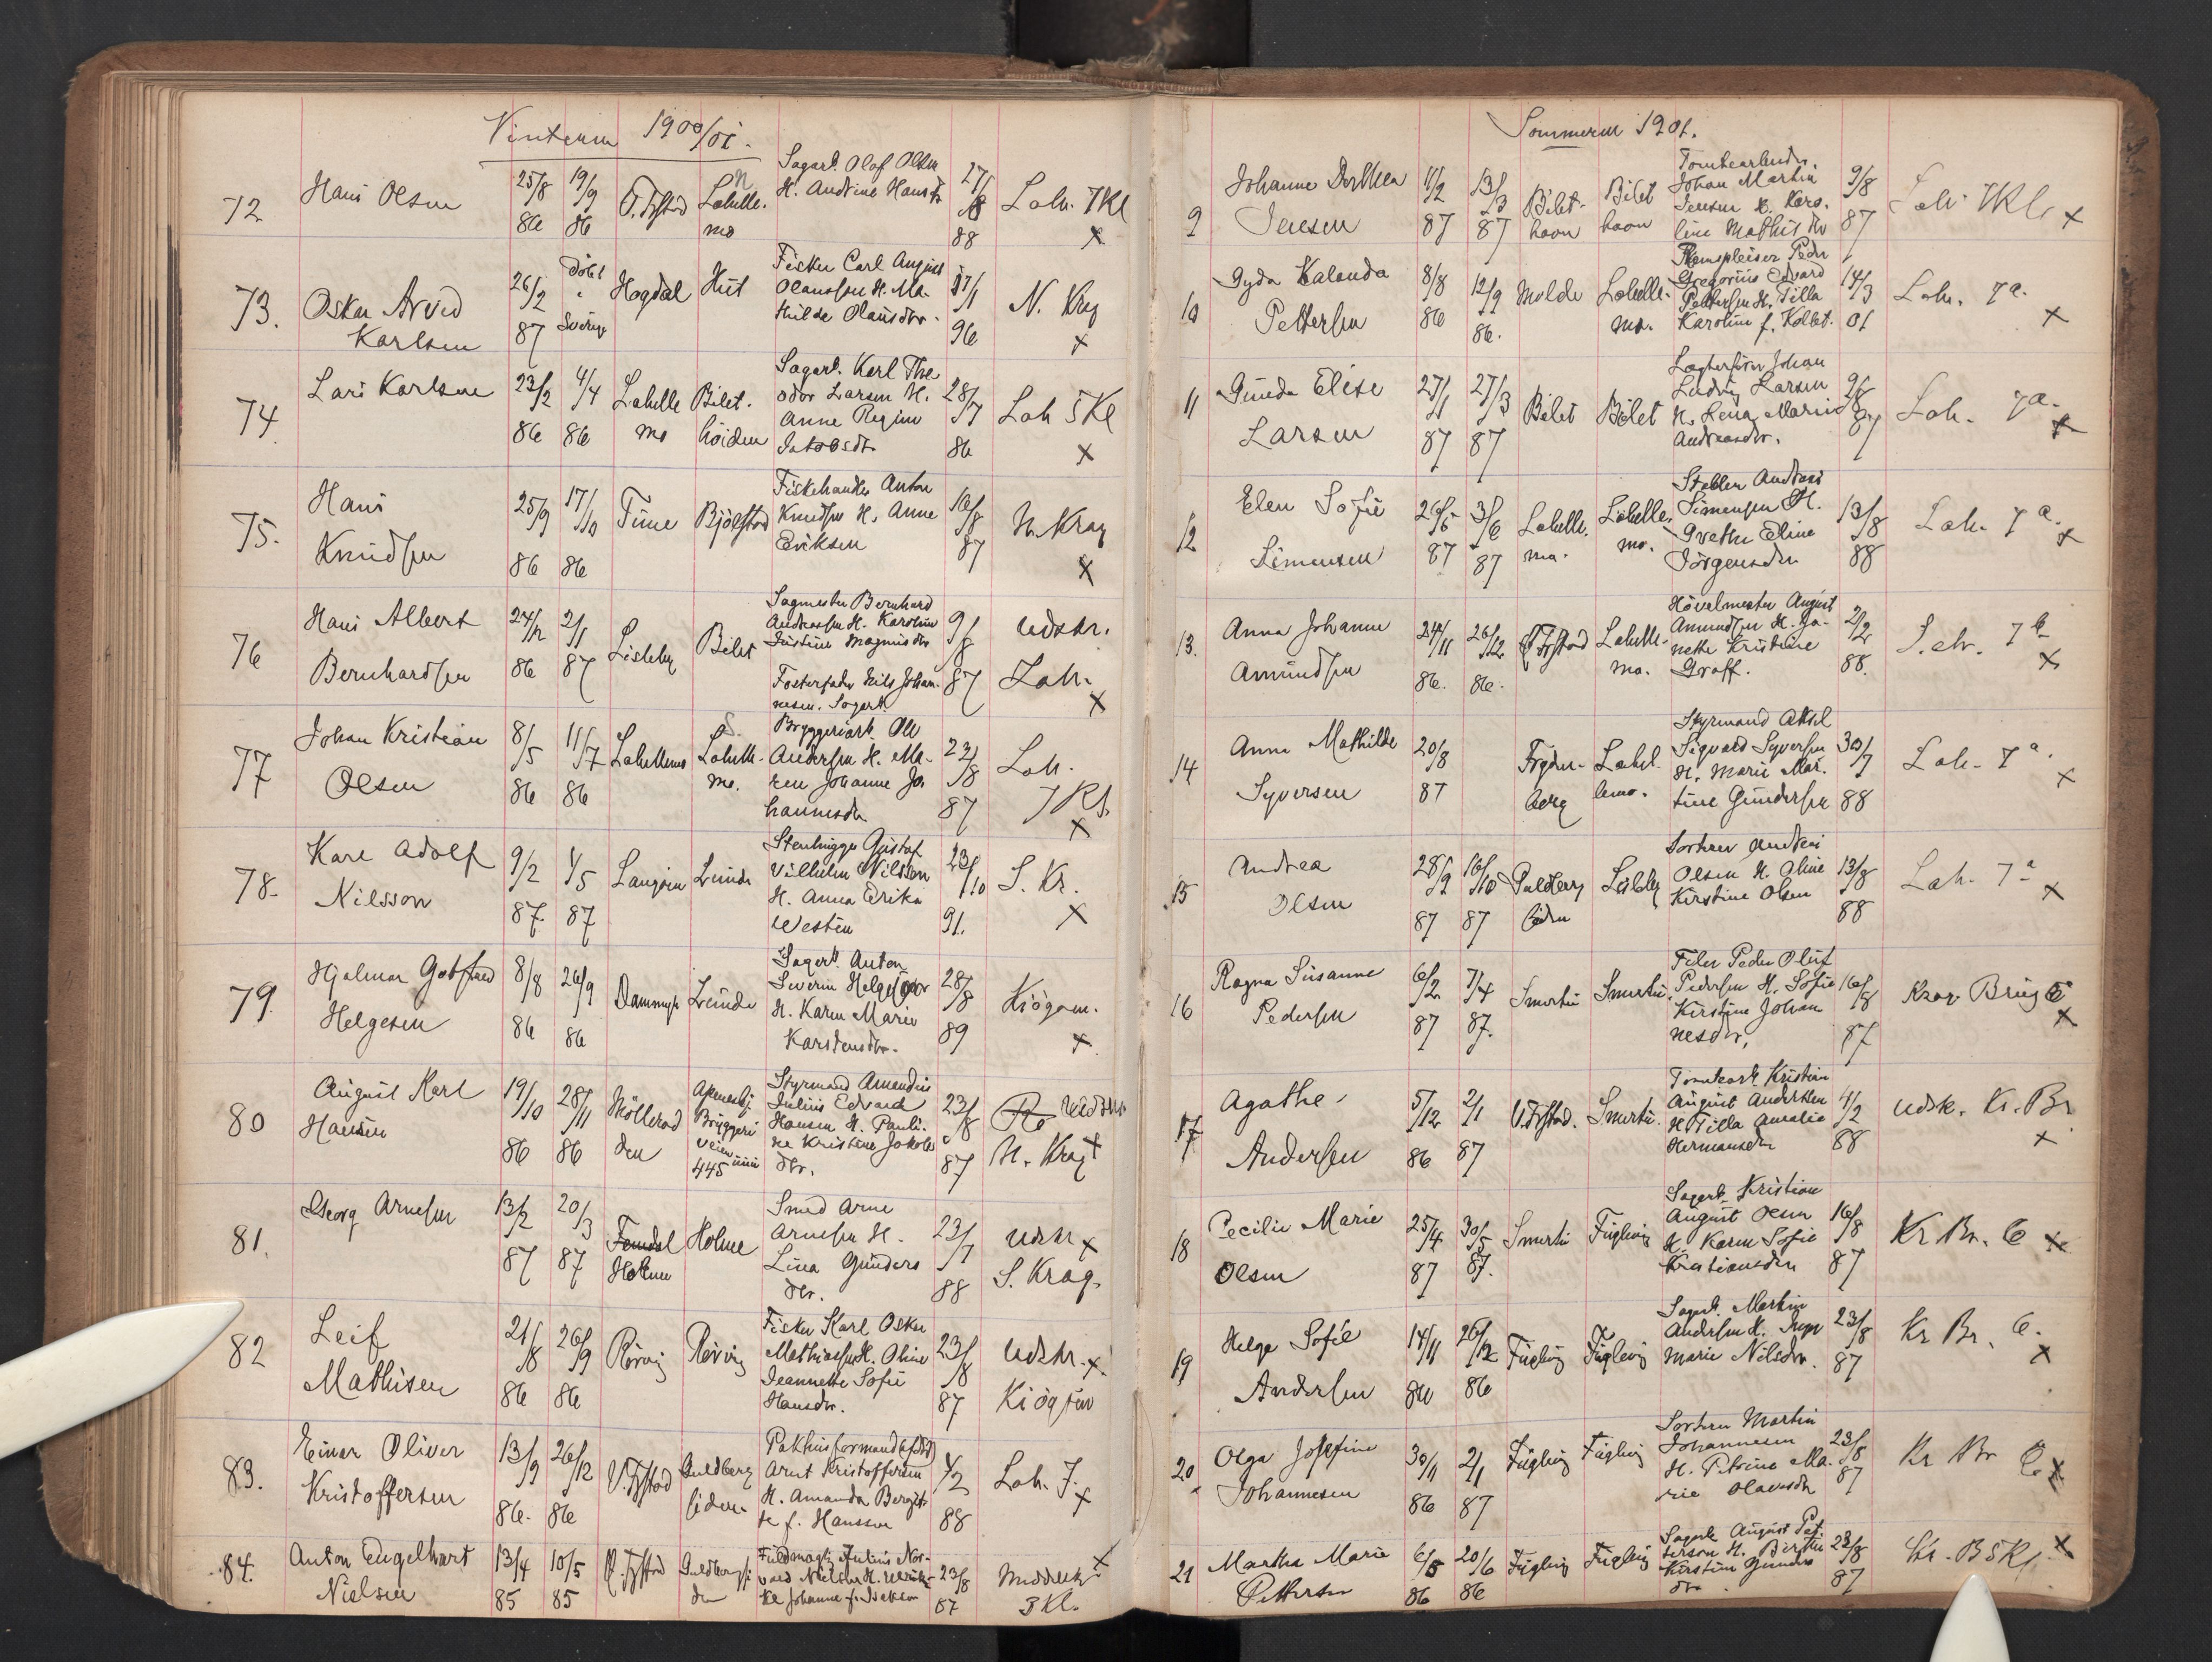 Vinteren 1900/01.
72 Hans Olsen 25/8 86 19/9 86 Ø. Fystad Labelle. mo Sagarb. Olof Olsen H. Andrine Hansdr 27/8 88 Lab. 7Kl x
73. Oskar Arvid Karlsen 26/2 87 Sverige Hogdal Hut Fisker Carl August Olaussen H. Mathilde Olausdtr. 27/1 96 N. Krag x
74. Lars Karlsen 23/2 86 4/4 86 Labelle mo Bilet. høiden Sagarb. Karl Theodor Larsen H. Anne Regine Jakobsdtr 28/7 86 Lab 5Kl x
75. Hans Knudsen 25/9 86 17/10 86 Tune Bjølstad Fiskehandler Anton Knudsen H. Anne Eriksen 16/8 87 N. Krag x
76 Hans Albert Bernhardsen 24/12 86 2/1 87 Lisleby Bilet Sagmester Bernhard Andreassen H. Karoline Justine Magnusdtr Fosterfader Nils Johannesen. Sagarb. 9/8 87 Udskr. Lab. x
77 Johan Kristian Olsen 8/5 86 11/7 86 Labellemo Labelle. mo. Bryggeriarb. Ole Andersen H. Maren Johanne Johannesdtr 23/8 87 Lab. 7Kl. x
78. Karl Adolf Nilsson 9/2 87. 1/5 87 Langøien Lunde Stenhugger Gustaf Vilhelm Nilsson H. Anna Erika Westin 23/10 91. S. Kr. x
79. Hjalmar Gotfred Helgesen 8/8 86 26/9 86 Dammyr Lunde Sagarb. Anton Severin Helgesen H. Karen Marie Karstensdtr. 28/8 89 Kiøgem. x
80 August Karl Hansen 19/10 86 28/11 86 Møllerod den Bryggeri veien 445 Styrmand Amandus Julius Edvard Hansen H. Pauline Kristine Jakobsdtr. 23/8 87 Udskr N. Krag x
81. Georg Arnesen 13/2 87 20/3 87 Holmen Holme Smed Arne Arnesen H. Lina Gundersdtr. 23/7 88 Udskr x S. Krag.
82 Leif Mathisen 21/8 86 26/9 86 Rørvig Rørvig Fisker Karl Oskar Mathiassen H. Oline Jeannette Sofie Hansdtr. 23/8 87 Udskr. x Kiøgfem
83. Einar Oliver Kristoffersen 13/9 86. 26/12 86 V. Fystad Guldberg siden Pakhusformand Arnt Kristoffersen H. Amanda Bergitte f. Hanssen 4/2 88 Lab. 7. x
84. Anton Engelhart Nielsen 13/4 85 10/5 85 Ø. Fystad Guldbergsiden Fuldmægtig Julius Norvald Nielsen H. Ulrikke Johanne f. Isaksen 23/8 87 Middelsk 3Kl. x
Sommeren 1901.
9 Johanne Dorthea Jensen 11/2 87 13/3 87 Bilet- havn Bilet havn Tomtearbeider. Johan Martin Jensen H. Karoline Mathisdtr 9/8 87 Lab. 7Kl. x
10 Gyda Kalanda Pettersen 8/8 86 12/9 86. Molde Labelle. mo. Remspleiser Peder Gregorius Edvard Pettersen H. Tilla Karoline f. Kolbet. 14/3 01 Lab. 7a. x
11 Gunda Elise Larsen 27/1 87 27/3 87 Bilet Bilet Johan Ludvig Larsen H. Lena Marie Andreasdtr. 9/8 87 Lab. 7a. x
12 Elen Sofie Simensen 26/5 87 3/6 87 Labelle. mo. Labelle. mo. Stabler Andreas Simensen H. Grethe Eline Jørgensdtr 13/8 88 Lab. 7a. x
13. Anna Johanne Amundsen 24/11 86. 26/12 86. Ø. Fystad Labelle. mo. Høvelmester August Amundsen H. Janette Kristine Groff. 2/2 88. Lab. 7b x
14 Anna Mathilde Syversen 20/8 87 Frydenberg Labellemo. Styrmand Aksel Sigvard Syversen H. Marie Martine Gundersen 30/7 88 Lab. 7a. x
15 Andrea Olsen 28/9 87 16/10 87 Guldberg siden Lisleby Sorterer Andreas Olsen H. Oline Kirstine Olsen 13/8 88 Lab. 7a x
16 Ragna Susanne Pedersen 6/2 87 7/4 87. Smertu Smertu. Filer Peder Oluf Pedersen H. Sofie Kirstine Johannesdtr. 16/8 87 Krag. Brug 6 x
17 Agathe Andersen 5/12 86 2/1 87 V. Fystad. Smertu. Tomtearb. Kristian August Andersen H. Tilla Amalie Hermansdtr 4/2 88 Udsk. Kr. Br. x
18 Cecilie Marie Olsen 25/4 87 30/5 87. Smertu Fuglevig Sagarb. Kristian August Olsen H. Karen Sofie Kristiansdtr 16/8 87 Kr Br. 6 x
19 Helga Sofie Andersen 14/11 86 26/12 86 Fuglevig Fuglevig Sagarb. Martin Andersen H. Inger Marie Nilsdtr. 23/8 87 Kr Br. 6. x
20 Olga Josefine Johannesen 30/11 86 2/1 87 Fuglevig Fuglevig Sorterer Martin Johannesen H. Petrine Marie Olavesdtr 23/8 87 Kr Br 6 x
21 Martha Marie Pettersen 6/5 86 20/6 86 Fuglevig Fuglevig Sagarb August Petterson H. Berthe Kirstine Gundersdtr 23/8 87 Kr. B 5Kl. x